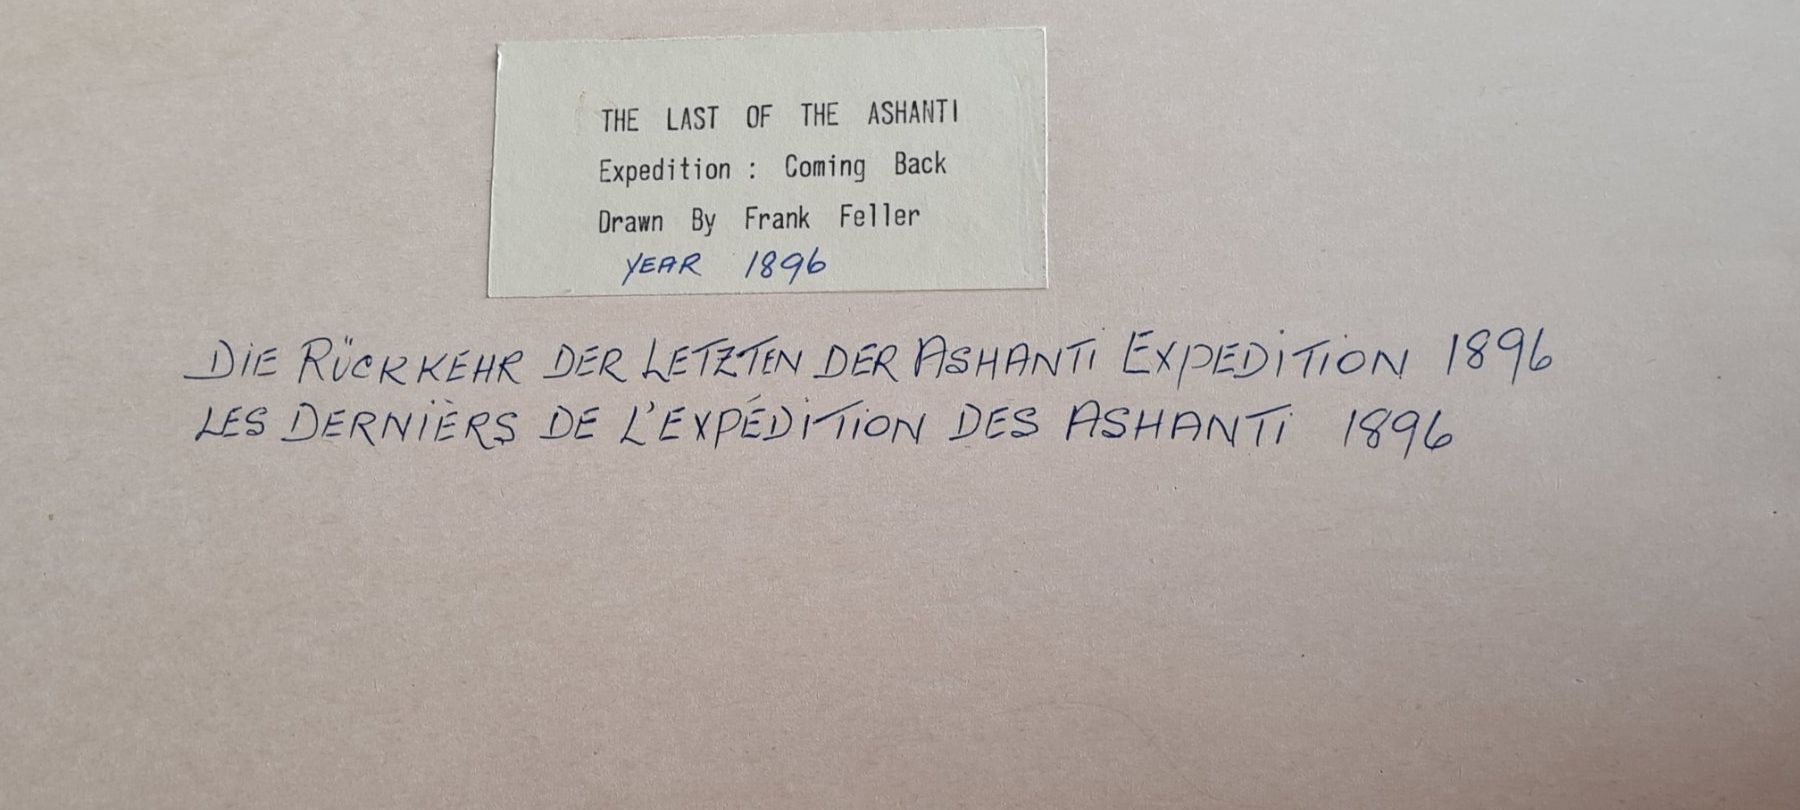 THE LAST OF THE ASHANTI
Expedition : Coming Back
Drawn By Frank Feller
YEAR 1896
DIE RÜCKKEHR DER LETZTEN DER ASHANTI EXPEDITION 1896
LES DERNIÈRS DE L'EXPÉDITION DES ASHANTI 1896